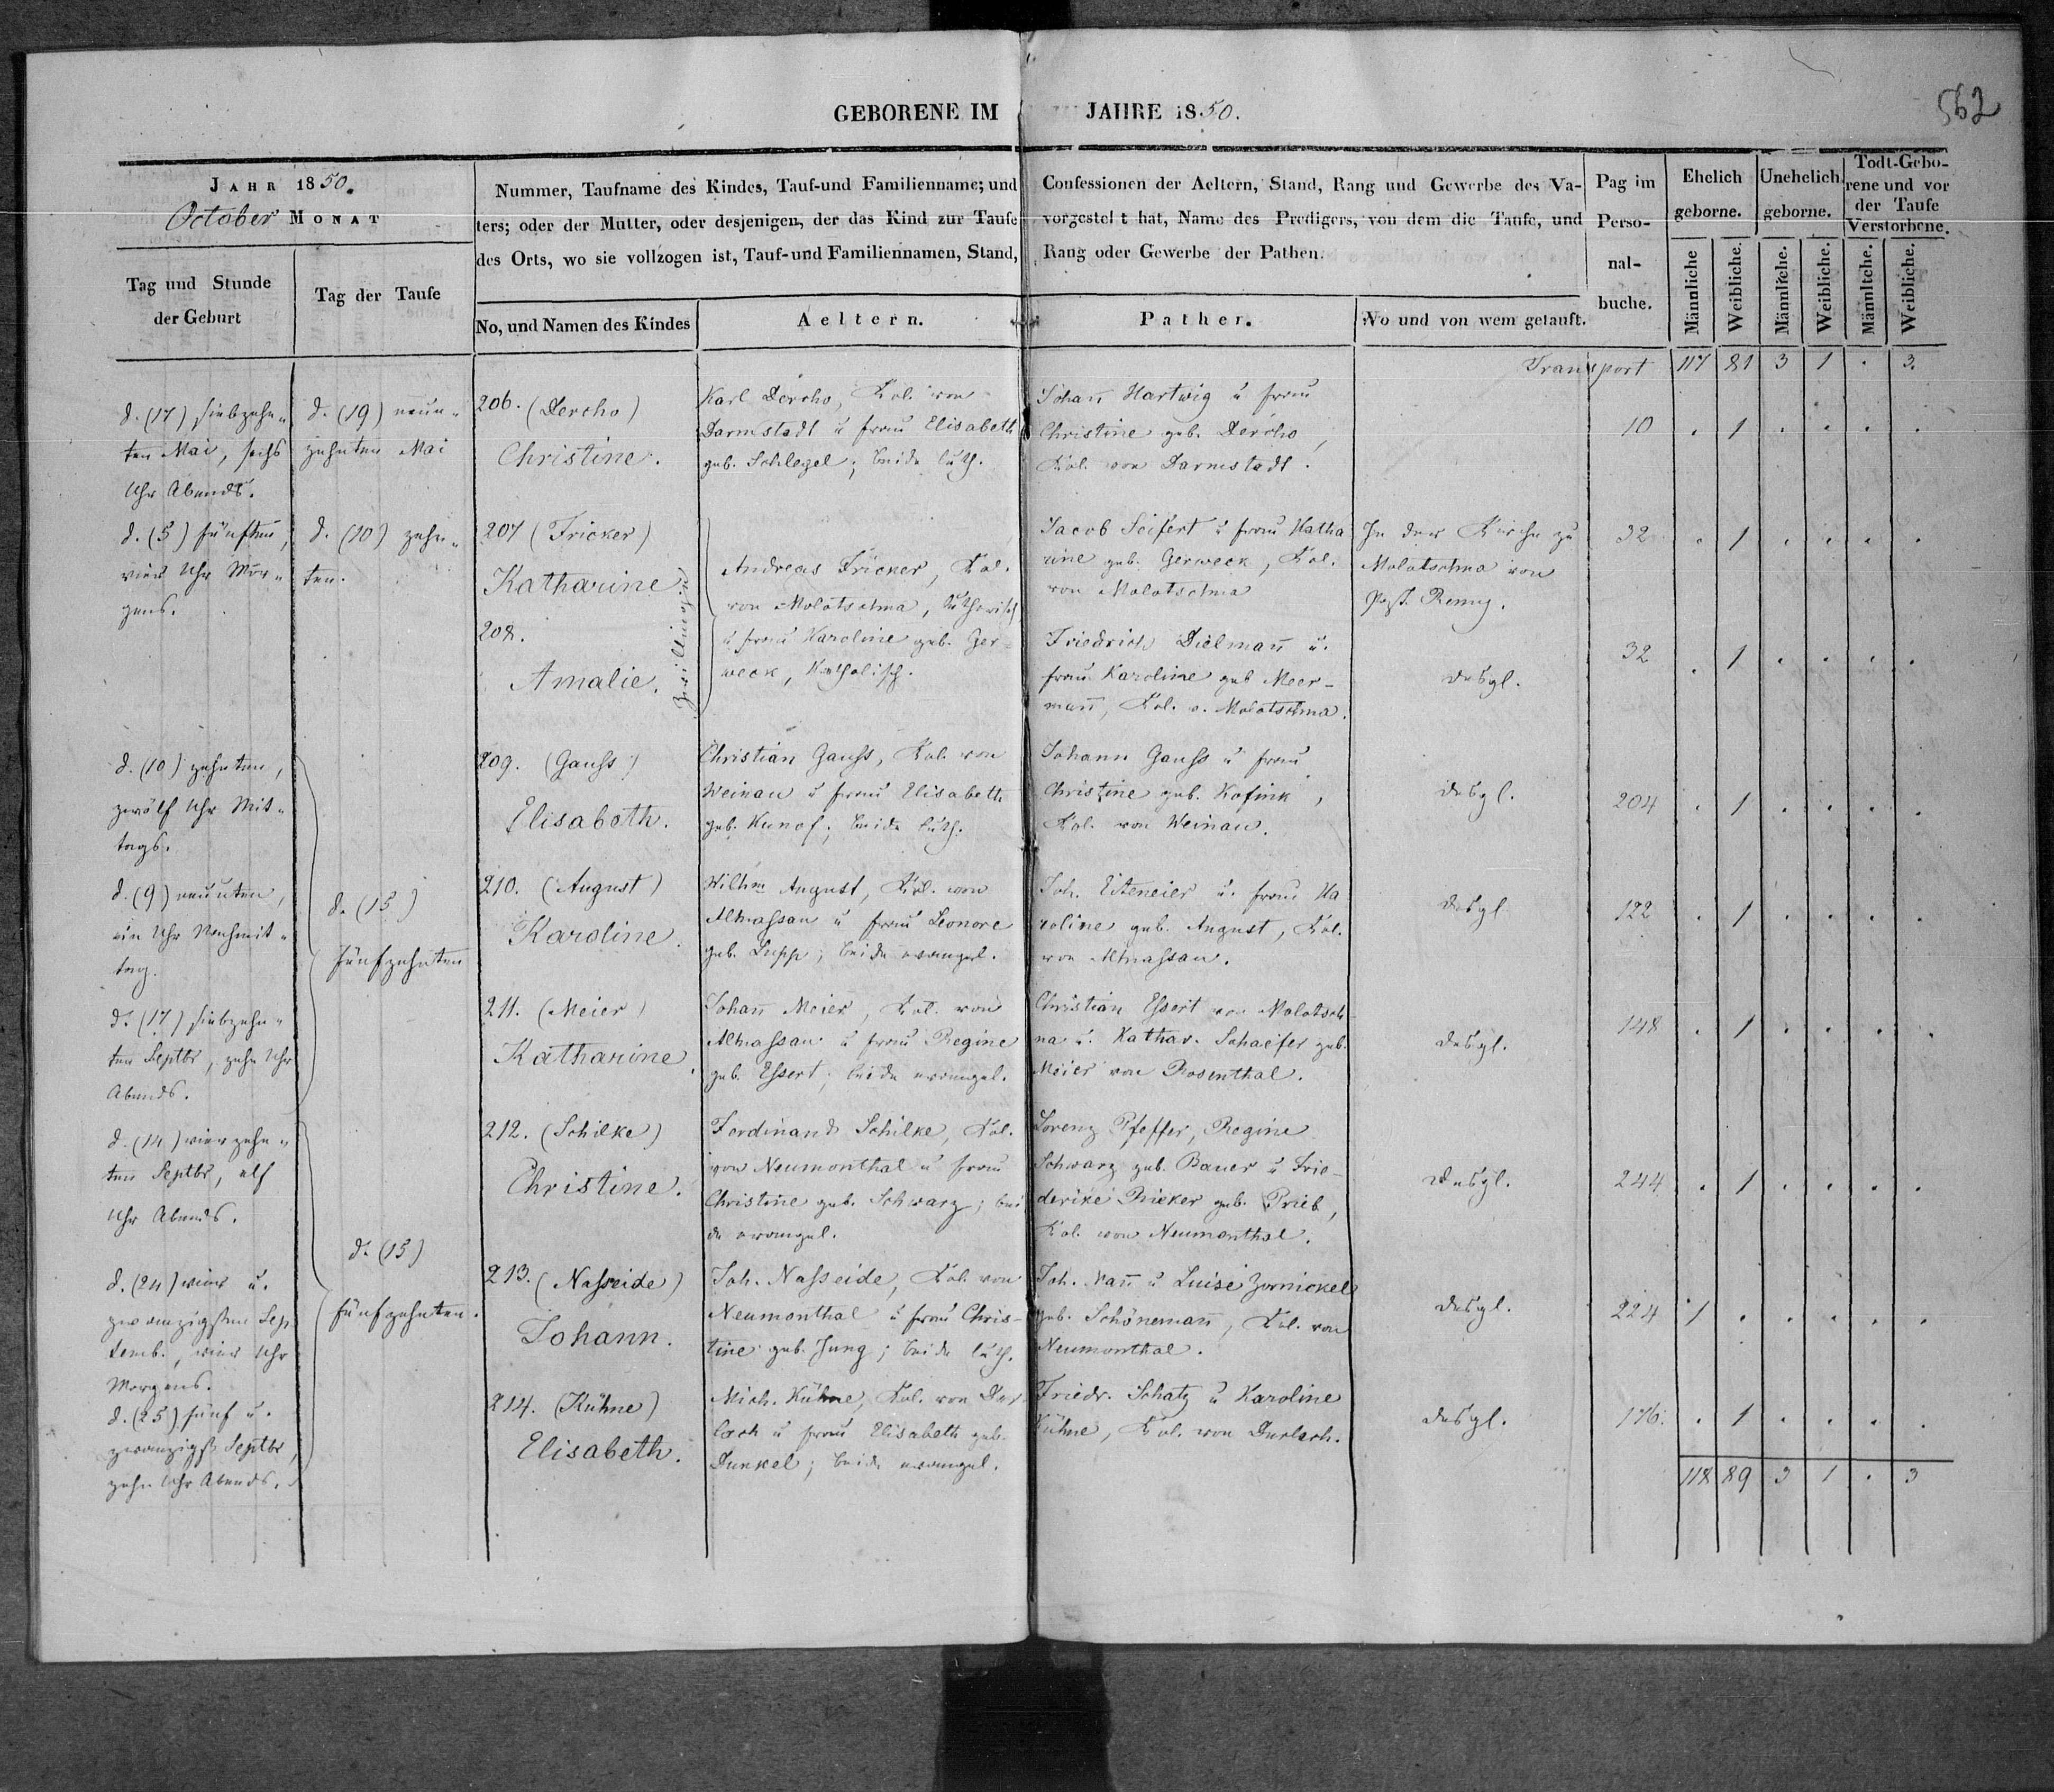 GEBORENE IM JAHRE 1850.
562
JAHR 1850.
October MONAT
Tag und Stunde
der Geburt
Tag der Taufe
Nummer, Taufname des Kindes, Tauf-und Familienname; und Confessionen der Aeltern, Stand, Rang und Gewerbe des Va-
ters; oder der Mutter, oder desjenigen, der das Kind zur Taufe vorgestellt hat, Name des Predigers, von dem die Taufe, und
des Orts, wo sie vollzogen ist, Tauf-und Familiennamen, Stand, Rang oder Gewerbe der Pathen.
No, und Namen des Kindes
Aeltern.
Pather.
Wo und von wem getauft.
Pag im
Perso-
nal-
buche.
Ehelich
geborne.
Unehelich
geborne.
Todt-Gebo-
rene und vor
der Taufe
Verstorbene.
Männliche
Weibliche.
Männliche.
Weibliche.
Männliche.
Weibliche.
Transport 117 81 3 1 . 3.
d. (17) siebzehn-
ten Mai, sechs
Uhr Abends.
d. (19) neun-
zehnten Mai
206. (Dercho)
Christine.
Karl Dercho, Kol. von
Darmstadt u frau Elisabeth
geb. Schlegel; beide luth.
Johan̄ Hartwig u frau
Christine geb. Dercho,
Kol. von Darmstadt.
10 . 1 . . . .
d. (5) fünften,
vier Uhr Mor-
gens.
d. (10) zehn-
ten.
207 (Fricker)
Katharine
208.
Amalie.
Zwillinge
Andreas Fricker, Kol.
von Molotschna, lutherisch
u frau Karoline geb. Ger-
weck, Katholisch.
Jacob Seifert u frau Katha
rine geb. Gerweck, Kol.
von Molotschna
In der Kirche zu
Molotschna von
Past. Remy.
32 . 1 . . . .
Friedrich Dielman̄ u.
frau Karoline geb Meer-
man̄, Kol. v. Molotschna.
desgl.
32 . 1 . . . .
d. (10) zehnten,
zwölf Uhr Mit-
tags.
209. (Gauss)
Elisabeth.
Christian Gauss, Kol. von
Weinau u frau Elisabeth
geb. Kunof; beide luth.
Johann Gauss u frau
Christine geb. Kofink,
Kol. von Weinau.
desgl.
204 . 1 . . . .
d. (9) neunten,
ein Uhr Nachmit-
tag.
d. (15)
fünfzehnten
210. (August)
Karoline.
Wilhm August, Kol. von
Altnassau u frau Leonore
geb. Lupp; beide evangel.
Joh. Eiteneier u. frau Ka
roline geb. August, Kol.
von Altnassau.
desgl
122 . 1 . . . .
d. (17) siebzehn-
ten Septbr, zehn Uhr
Abends.
211. (Meier)
Katharine.
Johan̄ Meier, Kol. von
Altnassau u frau Regine
geb. Essert; beide evangel.
Christian Essert von Molotsch
na u. Kathar. Schaefer geb.
Meier von Rosenthal.
desgl.
148 . 1 . . . .
d. (14) vierzehn-
ten Septbr, elf
Uhr Abends.
212. (Schilke)
Christine.
Ferdinand Schilke, Kol.
von Neumonthal u frau
Christine geb. Schwarz; bei
de evangel.
Lorenz Pfeffer, Regine
Schwarz geb. Bauer u Frie-
derike Rieker geb. Prieb,
Kol. von Neumonthal.
desgl.
244 . 1 . . . .
d. (24) vier u.
zwanzigsten Sep
temb., vier Uhr
Morgens.
d. (15)
fünfzehnten.
213. (Nasseide)
Johann.
Joh. Nasseide, Kol. von
Neumonthal u frau Chris-
tine geb. Jung; beide luth.
Joh. Man̄ u Luise Zornickel
geb. Schöneman̄, Kol. von
Neumonthal.
desgl.
224 1 . . . . .
d. (25) fünf u.
zwanzigst Septbr,
zehn Uhr Abends.
214. (Kühne)
Elisabeth.
Mich. Kühne, Kol. von Dur
lach u frau Elisabeth geb.
Dunkel; beide evangel.
Friedr. Schatz u Karoline
Kühne, Kol. von Durlach.
desgl.
176. . 1 . . . .
118 89 3 1 . 3